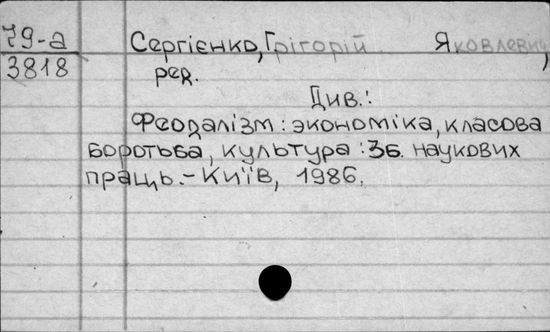 79-а Сергієнко, Грігорій Яковлевич,
3818 ред.
Див.:
Феодалізм: экономіка, класова
боротьба, культура: Зб. наукових
праць.- Київ, 1986.